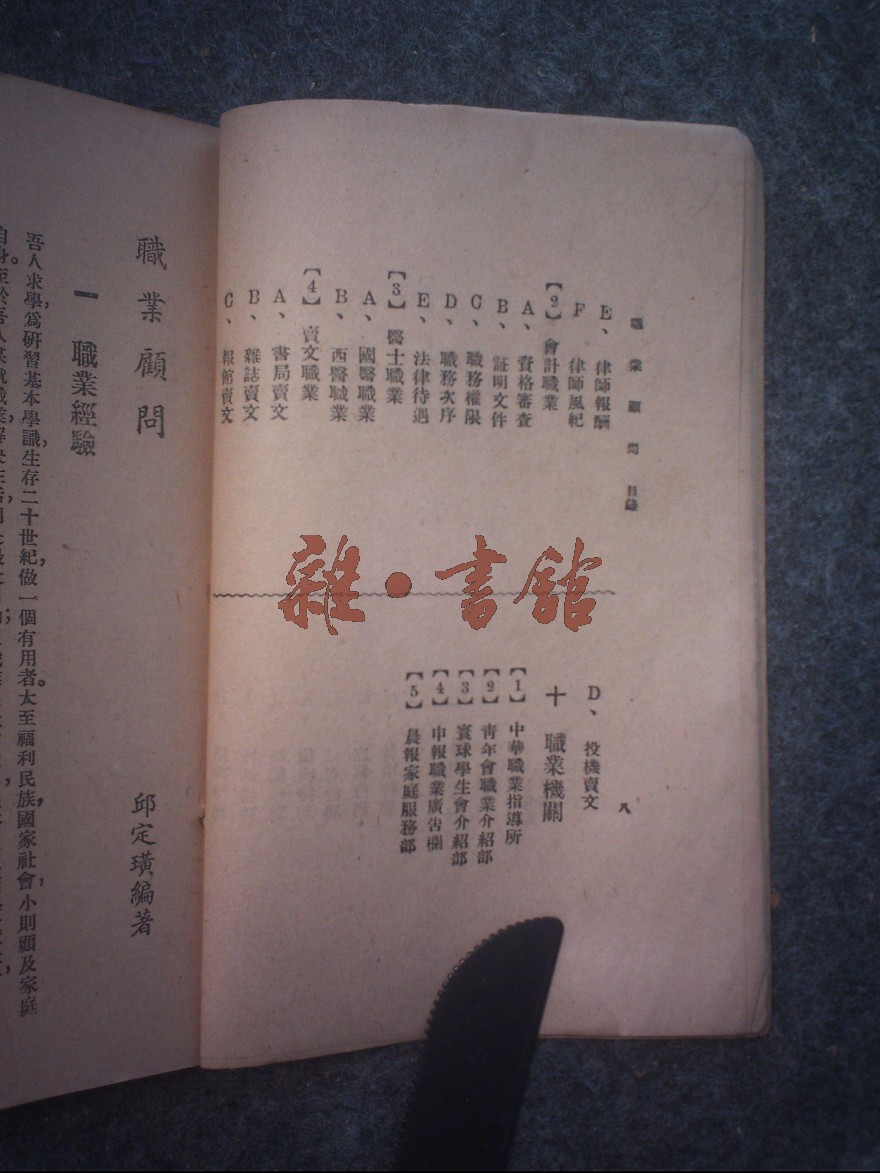 職業顧問 目錄
E、律師報酬
F 律師風紀
【2】會計職業
A、資格審查
B、証明文件
C、職務權限
D、職務次序
E、法律待遇
【3】醫士職業
A、國醫職業
B、西醫職業
【4】賣文職業
A、書局賣文
B、雜誌賣文
C、報館賣文
八
D、投機賣文
十 職業機關
【1】中華職業指導所
【2】青年會職業介紹部
【3】寰球學生會介紹部
【4】申報職業廣告欄
【5】晨報家庭服務部
雜·書館
職業顧問
邱定璜編著
一 職業經驗
吾人求學,爲研習基本學識,生存二十世紀,做一個有用者。大至福利民族,國家社會,小則顧及家庭